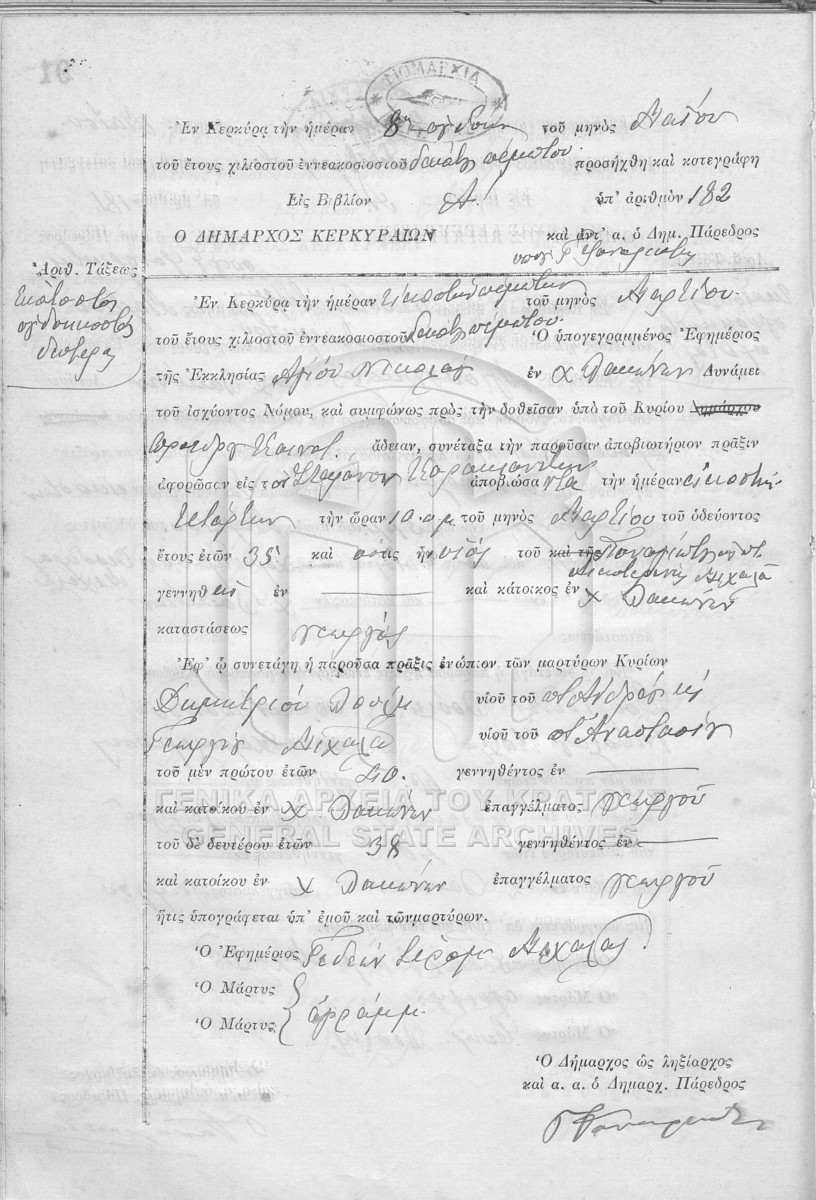 ΝΟΜΑΡΧΙΑ
Ἐν Κερκύρᾳ τὴν ἡμέραν 8ην ὀγδόην τοῦ μηνὸς Μαΐου
τοῦ ἔτους χιλιοστοῦ ἐννεακοσιοσιοῦ δεκάτου πέμπτου προσήχθη καὶ κατεγράφη
Εἰς Βιβλίον Α! ὑπ' ἀριθμὸν 182
Ο ΔΗΜΑΡΧΟΣ ΚΕΡΚΥΡΑΙΩΝ καὶ ἀντ' α. ὁ Δημ. Πάρεδρος
Ἀριθ. Τάξεως
Ἑκατοστὴ
ὀγδοηκοστὴ
δευτέρα
Ἐν Κερκύρᾳ τὴν ἡμέραν εἰκοστὴν πέμπτην τοῦ μηνὸς Μαρτίου
τοῦ ἔτους χιλιοστοῦ ἐννεακοσιοστοῦ δεκάτου πέμπτου. Ὁ ὑπογεγραμμένος Ἐφημέριος
τῆς Ἐκκλησίας Ἁγίου Νικολάου ἐν χ Λακώνων Δυνάμει
τοῦ ἰσχύοντος Νόμου, καὶ συμφώνως πρὸς τὴν δοθεῖσαν ὑπὸ τοῦ Κυρίου Δημάρχου
προέδρου Κοινοτ. ἄδειαν, συνέταξα τὴν παροῦσαν ἀποβιωτήριον πρᾶξιν
ἀφορῶσαν εἰς τὸν Στέφανον ἀποβιώσαντα τὴν ἡμέραν εἰκοστὴν
τετάρτην τὴν ὥραν 10 π.μ. τοῦ μηνὸς Μαρτίου τοῦ ὁδεύοντος
ἔτους ἐτῶν 35 καὶ ὅστις ἦν υἱὸς τοῦ καὶ τῆς Παναγιώτου
Αἰκατερίνης Μιχαλᾶ
γεννηθεὶς ἐν καὶ κάτοικος ἐν χ Λακώνων
καταστάσεως γεωργός
Ἐφ' ᾧ συνετάγη ἡ παροῦσα πρᾶξις ἐνώπιον τῶν μαρτύρων Κυρίων
Δημητρίου υἱοῦ τοῦ ποτ Ἀνδρέου κ
Γεωργίου Μιχαλᾶ υἱοῦ τοῦ ποτ Ἀναστασίου
τοῦ μὲν πρώτου ἐτῶν 40. γεννηθέντος ἐν
καὶ κατοίκου ἐν χ Λακώνων ἐπαγγέλματος γεωργοῦ
ΓΕΝΙΚΑ ΑΡΧΕΙΑ ΤΟΥ ΚΡΑΤΟΥΣ
GENERAL STATE ARCHIVES
τοῦ δὲ δευτέρου ἐτῶν 38 γεννηθέντος ἐν
καὶ κατοίκου ἐν χ Λακώνων ἐπαγγέλματος γεωργοῦ
ἥτις ὑπογράφεται ὑπ' ἐμοῦ καὶ τῶνμαρτύρων.
Ὁ Ἐφημέριος Γεδεὼν Μιχαλᾶς
Ὁ Μάρτυς
Ὁ Μάρτυς ἀγράμμ.
Ὁ Δήμαρχος ὡς ληξίαρχος
καὶ α. α. ὁ Δημαρχ. Πάρεδρος